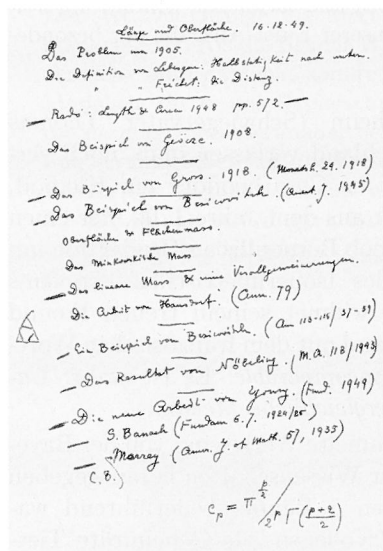 Länge und Oberfläche. 16-12-49.
Das Problem um 1905.
Die Definition von Lebesgue: Halbstetigkeit nach unten.
" " " Fréchet: die Distanz.
Radó: Length & Area 1948 pp. 572.
Das Beispiel von Geöcze. 1908.
Das Beispiel von Gross. 1918. (Monatsh. 29. 1918)
Das Beispiel von Besicovitch. (Quart. J. 1945)
Oberfläche & Flächenmass.
Das Minkowskische Mass
Das lineare Mass & eine Verallgemeinerungen.
Die Arbeit von Hausdorff. (Ann. 79)
Ein Beispiel von Besicovitch. (An 113-115/31-39)
Das Resultat von Nöbeling. (M.A. 118/1943)
Die neue Arbeit von Young. (Fund. 1949)
S. Banach (Fundam 6.7. 1924/25)
Morrey (Amer. J. of Math. 57, 1935)
C. B.
c_p = π^{p/2} / 2^p Γ((p+2)/2)